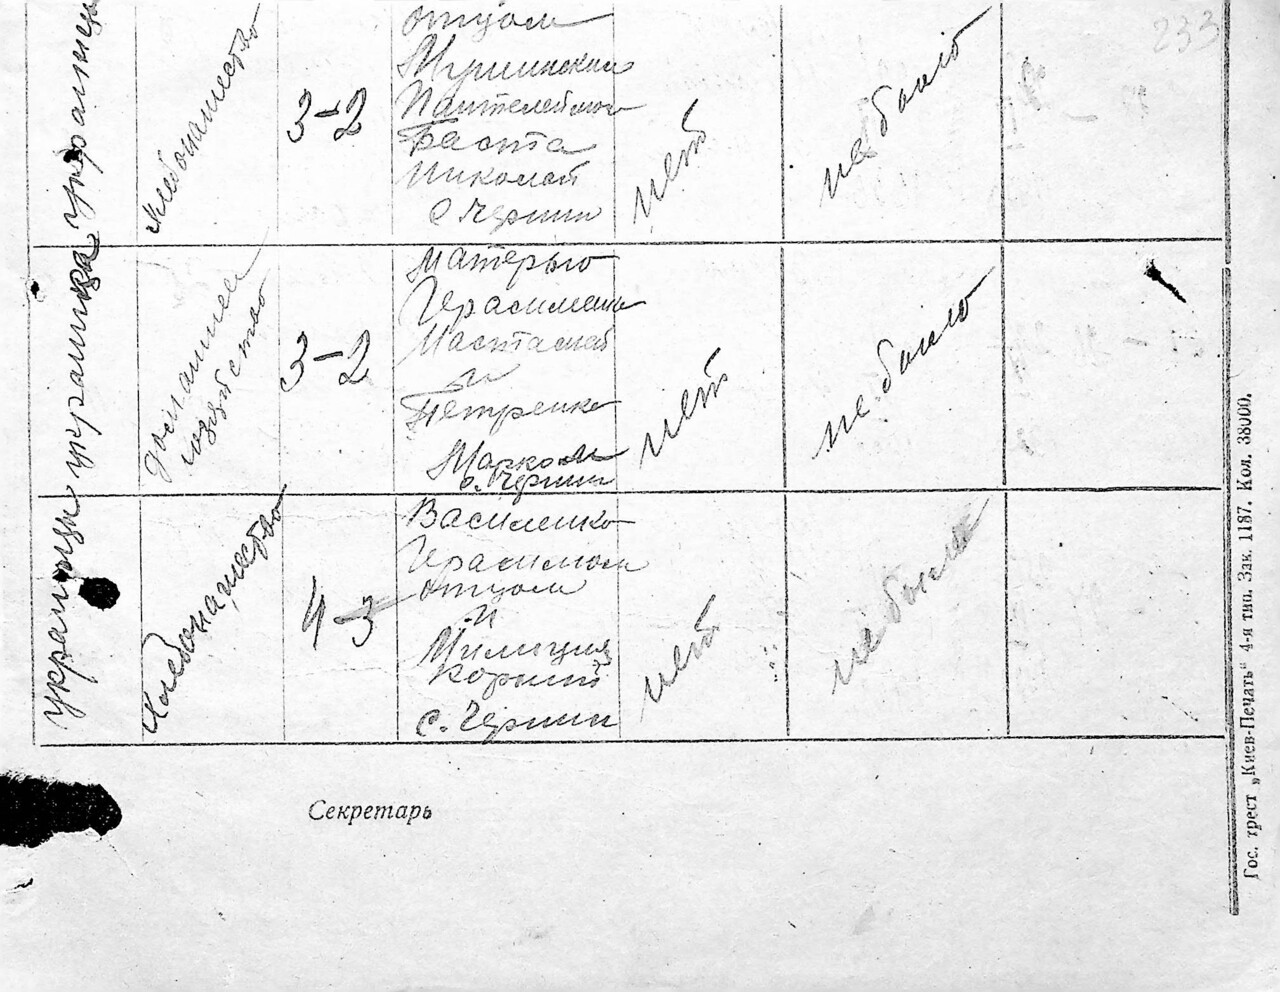 233
украинцы
хлебопашество
3-2
отцом
Пантелеймон
Баста
Николай
с. Черпин
нет
не было
украинка
домашнее
хозяйство
3-2
матерью
Герасименко
Настасией
и
Петренко
Марком
с. Черпин
нет
не было
украинцы
хлебопашество
4-3
Василенко
Герасимом
отцом
и
Милиция
Корний
с. Черпин
нет
не было
Секретарь
Гос. трест „Киев-Печать“ 4-я тип. Зак. 1187. Кол. 38000.